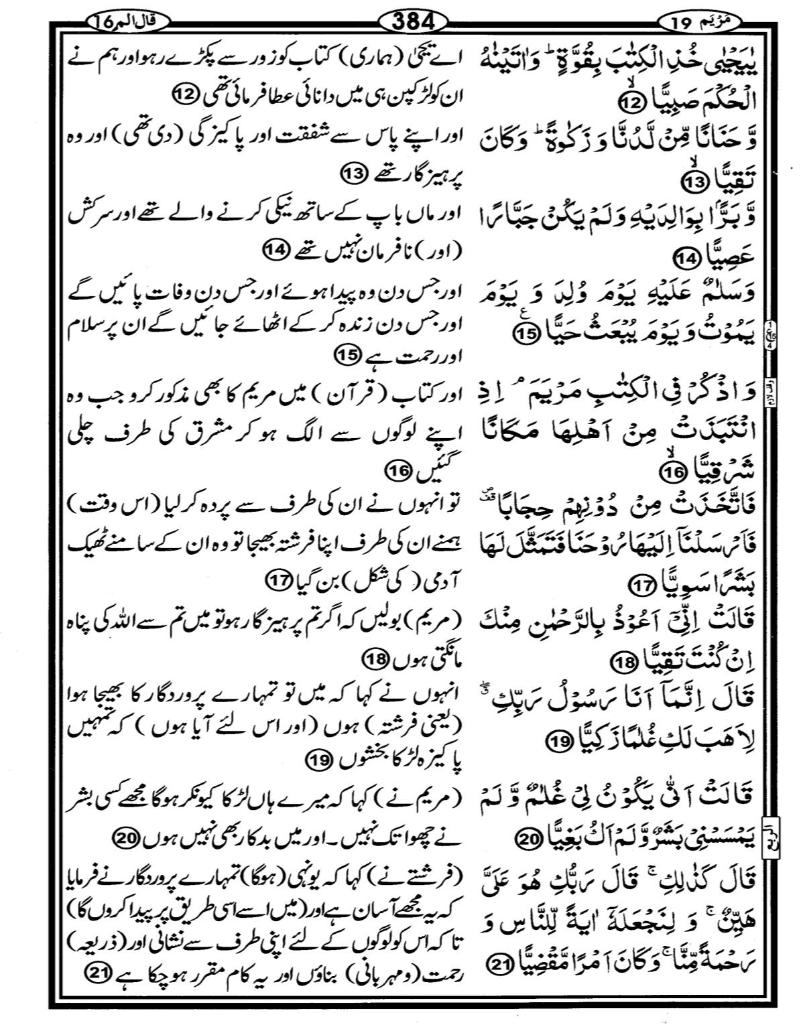 مَرْيَم 19
384
قال الم 16
يٰيَحْيٰى خُذِ الْكِتٰبَ بِقُوَّةٍ ؕ وَاٰتَيْنٰهُ
الْحُكْمَ صَبِيًّا ۙ 12
وَّ حَنَانًا مِّنْ لَّدُنَّا وَ زَكٰوةً ؕ وَكَانَ
تَقِيًّا ۙ 13
وَّ بَرًّۢا بِوَالِدَيْهِ وَلَمْ يَكُنْ جَبَّارًا
عَصِيًّا 14
وَسَلٰمٌ عَلَيْهِ يَوْمَ وُلِدَ وَ يَوْمَ
يَمُوْتُ وَ يَوْمَ يُبْعَثُ حَيًّا ع 15
وَ اذْكُرْ فِى الْكِتٰبِ مَرْيَمَ ۘ اِذِ
انْتَبَذَتْ مِنْ اَهْلِهَا مَكَانًا
شَرْقِيًّا ۙ 16
فَاتَّخَذَتْ مِنْ دُوْنِهِمْ حِجَابًا
فَاَرْسَلْنَاۤ اِلَيْهَا رُوْحَنَا فَتَمَثَّلَ لَهَا
بَشَرًا سَوِيًّا 17
قَالَتْ اِنِّىْۤ اَعُوْذُ بِالرَّحْمٰنِ مِنْكَ
اِنْ كُنْتَ تَقِيًّا 18
قَالَ اِنَّمَاۤ اَنَا رَسُوْلُ رَبِّكِ
لِاَهَبَ لَكِ غُلٰمًا زَكِيًّا 19
قَالَتْ اَنّٰى يَكُوْنُ لِىْ غُلٰمٌ وَّ لَمْ
يَمْسَسْنِىْ بَشَرٌ وَّ لَمْ اَكُ بَغِيًّا 20
قَالَ كَذٰلِكِ ۚ قَالَ رَبُّكِ هُوَ عَلَىَّ
هَيِّنٌ ۚ وَ لِنَجْعَلَهٗۤ اٰيَةً لِّلنَّاسِ وَ
رَحْمَةً مِّنَّا ۚ وَكَانَ اَمْرًا مَّقْضِيًّا 21
اے یحییٰ (ہماری) کتاب کو زور سے پکڑے رہو اور ہم نے
ان کو لڑکپن ہی میں دانائی عطا فرمائی تھی 12
اور اپنے پاس سے شفقت اور پاکیزگی (دی تھی) اور وہ
پرہیزگار تھے 13
اور ماں باپ کے ساتھ نیکی کرنے والے تھے اور سرکش
(اور) نافرمان نہیں تھے 14
اور جس دن وہ پیدا ہوئے اور جس دن وفات پائیں گے
اور جس دن زندہ کر کے اٹھائے جائیں گے ان پر سلام
اور رحمت ہے 15
اور کتاب (قرآن) میں مریم کا بھی مذکور کرو جب وہ
اپنے لوگوں سے الگ ہو کر مشرق کی طرف چلی
گئیں 16
تو انہوں نے ان کی طرف سے پردہ کر لیا (اس وقت)
ہمنے ان کی طرف اپنا فرشتہ بھیجا تو وہ ان کے سامنے ٹھیک
آدمی (کی شکل) بن گیا 17
(مریم) بولیں کہ اگر تم پرہیزگار ہو تو میں تم سے اللہ کی پناہ
مانگتی ہوں 18
انہوں نے کہا کہ میں تو تمہارے پروردگار کا بھیجا ہوا
(یعنی فرشتہ) ہوں (اور اس لئے آیا ہوں) کہ تمہیں
پاکیزہ لڑکا بخشوں 19
(مریم نے) کہا کہ میرے ہاں لڑکا کیونکر ہو گا مجھے کسی بشر
نے چھوا تک نہیں۔ اور میں بدکار بھی نہیں ہوں 20
(فرشتے نے) کہا کہ یونہی (ہوگا) تمہارے پروردگار نے فرمایا
کہ یہ مجھے آسان ہے اور (میں اسے اسی طریق پر پیدا کروں گا)
تا کہ اس کو لوگوں کے لئے اپنی طرف سے نشانی اور (ذریعہ)
رحمت (و مہربانی) بناؤں اور یہ کام مقرر ہو چکا ہے 21
وقف لازم
الربع